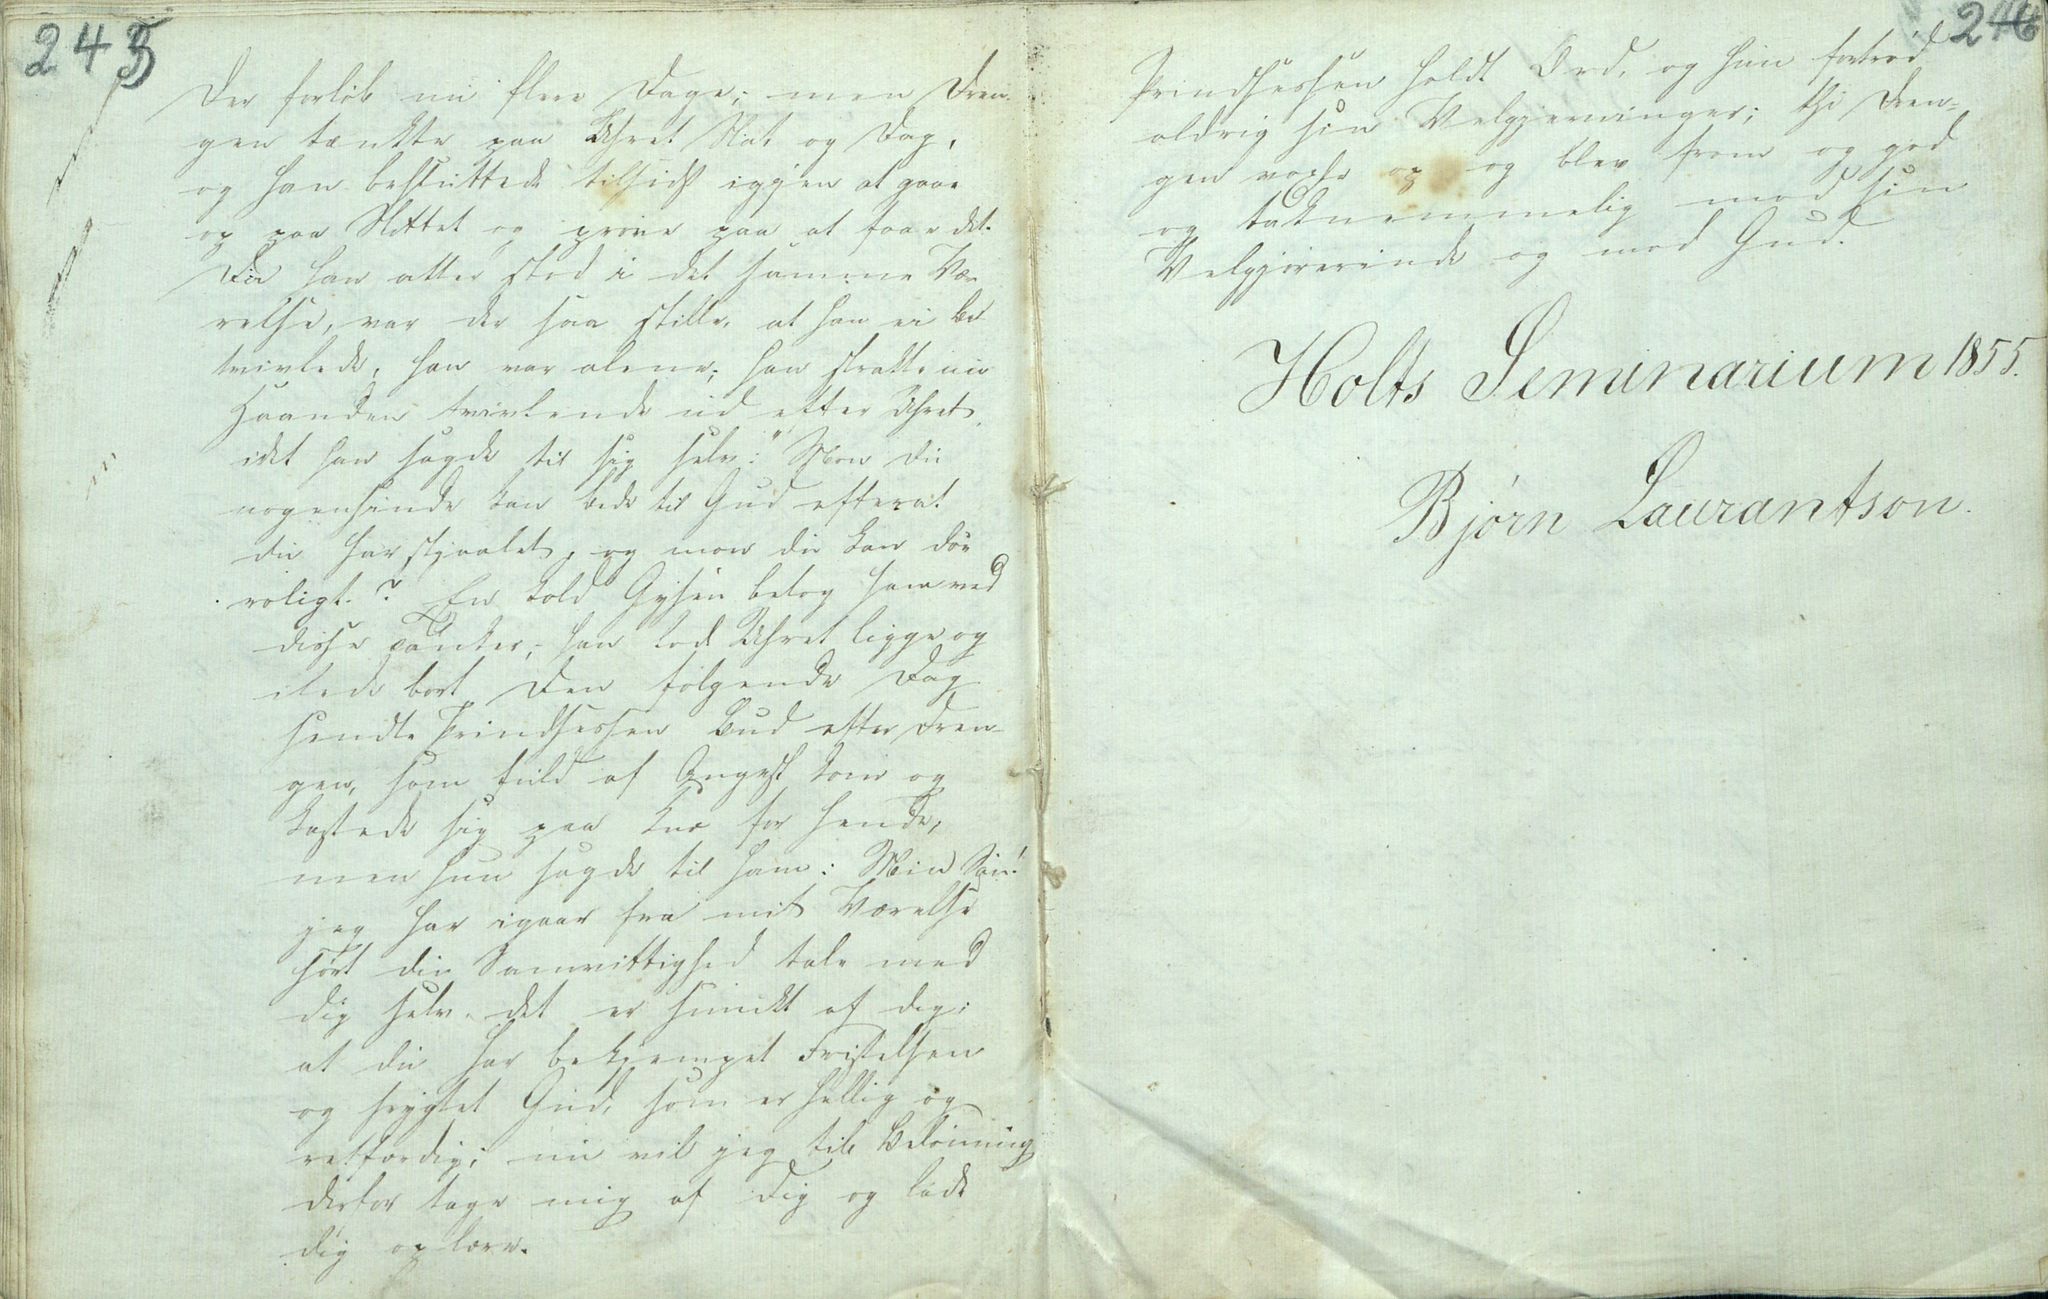 245
Der forløb nu flere Dage; men Dren-
gen tænkte paa Uhret Nat og Dag,
og han besluttede tilsidst igjen at gaae
op paa Slottet og prøve paa at faae det.
Da han atter stod i det samme Væ-
relse, var der saa stille, at han ei be
tvivlede, han var alene; han strakte nu
Haanden tvivlende ud efter Uhret,
idet han sagde til sig selv: "Mon du
nogensinde kan bede til Gud efterat
du har stjaalet, og mon du kan døe
roligt"? En kold Gysen betog ham ved
disse Tanker; han lod Uhret ligge og
ilede bort. Den følgende Dag
sendte Prindsessen Bud efter Dren-
gen, som fuld af Angest kom og
kastede sig paa Knæ for hende,
men hun sagde til ham: Min Søn!
jeg har igaar fra mit Værelse
hørt din Samvittighed tale med
dig selv. det er smukt af dig,
at du har bekjempet Fristelsen
og frygtet Gud, som er hellig og
retfærdig; nu vil jeg til Belønning
derfor tage mig af dig og lade
dig oplære.
246
Prindsessen holdt Ord, og hun fortrød
aldrig sin Velgjerninger; thi Dren-
gen voxte op og blev from og god
og taknemmelig mod sin
Velgjørerinde og mod Gud.
Holts Seminarium 1855.
Bjørn Laurantson.